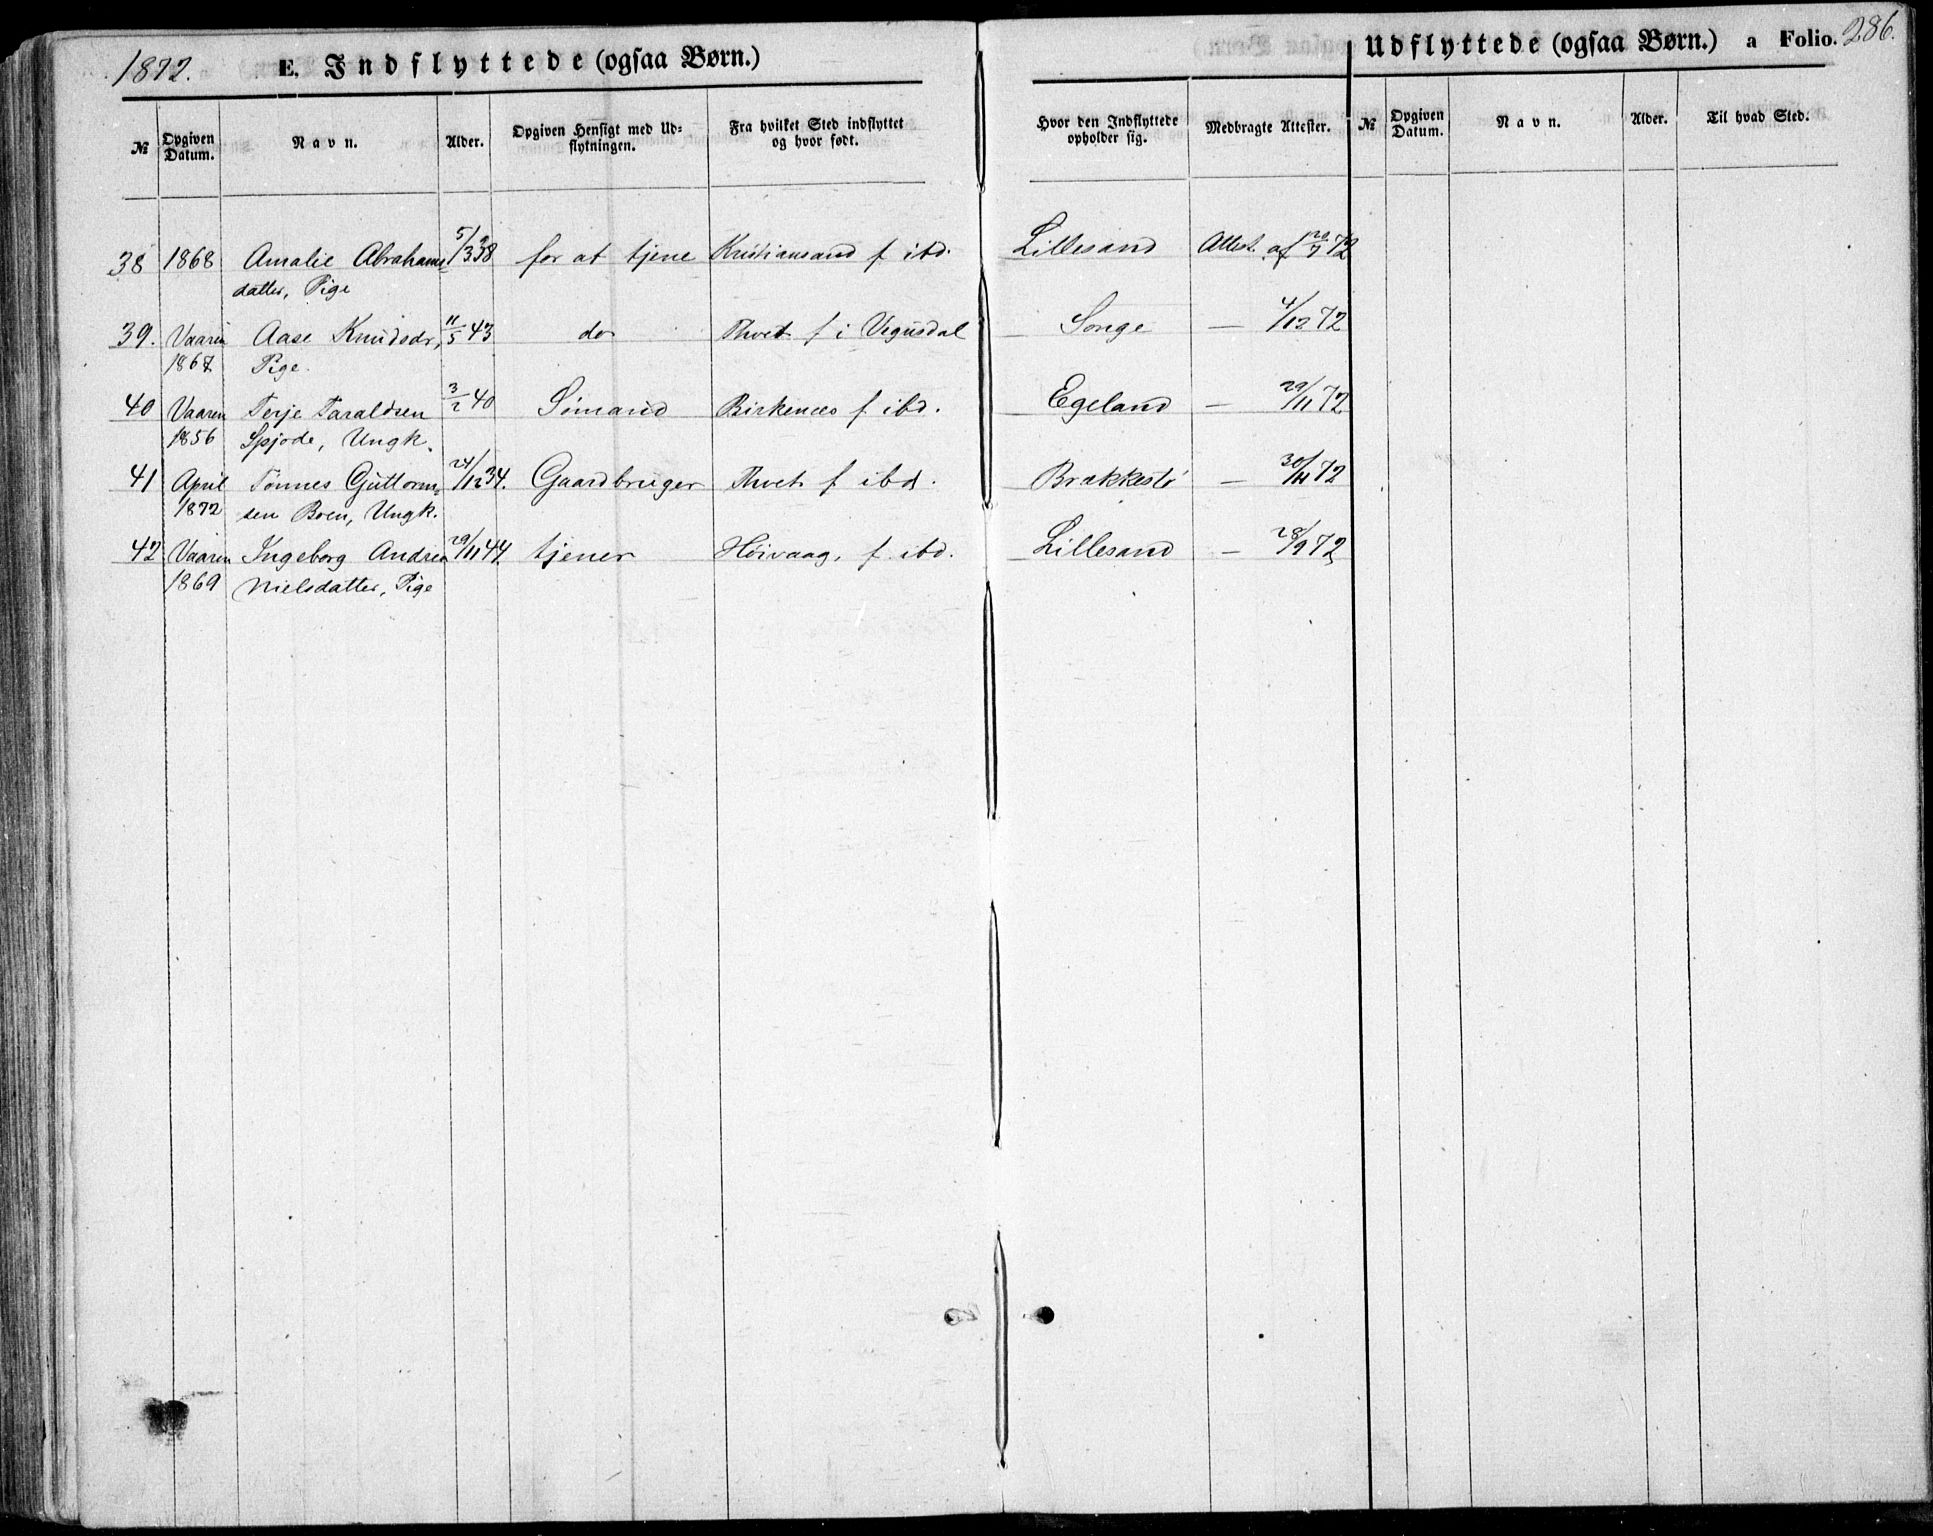 1872. E. Indflyttede (ogsaa Børn.) Udflyttede (ogsaa Børn.) a Folio. 286.
№ Opgiven Datum. Navn. Alder. Opgiven Hensigt med Udflytningen. Fra hvilket Sted indflyttet og hvor født. Hvor den Indflyttede opholder sig. Medbragte Attester. № Opgiven Datum. Navn. Alder. Til hvad Sted.
38 1868 Amalie Abrahams 5/3 38 for at tjene Kristiansand f ibd. Lillesand Attest af 20/7 72
datter, Pige
39. Vaaren Aase Knudsdr, 11/5 43 do Thvet f i Vegusdal Songe — 4/12 72
1867 Pige.
40 Vaaren Terje Taraldsen 3/2 40 Sømand Birkenæs f ibd. Egeland — 29/11 72
1856 Spjode, Ungk.
41 April Tønnes Guttorm- 24/12 34. Gaardbruger Thvet f ibd. Brækkestø — 30/11 72
1872 sen Boen, Ungk.
42 Vaaren Ingeborg Andrea 29/11 44. tjener Høivaag, f ibd. Lillesand — 28/9 72
1869 Nielsdatter, Pige